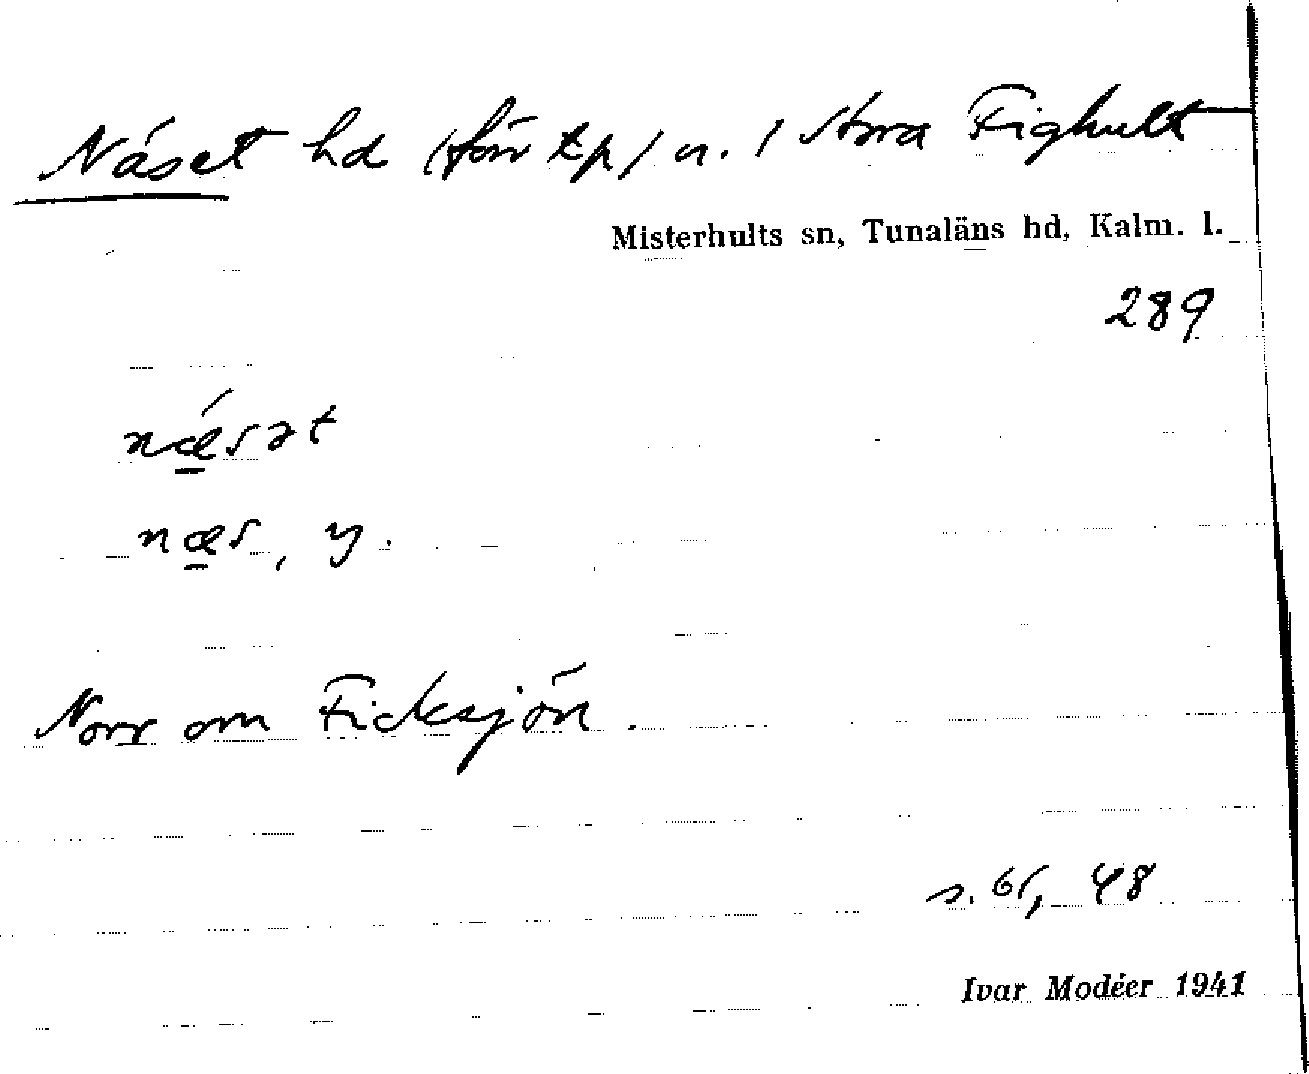 Näset hd (förr tp) u. / Stora Fighult
Misterhults sn, Tunaläns hd, Kalm. l.
289
nǽ̱sət
næ̱s, y.
Norr om Ficksjön.
s. 65, 48
Ivar Modéer 1941